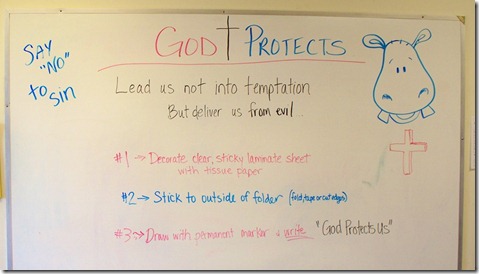 SAY
"NO"
to sin
GOD PROTECTS
Lead us not into temptation
But deliver us from evil...
#1 → Decorate clear, sticky laminate sheet
with tissue paper
#2 → Stick to outside of folder (fold, tape or cut edges)
#3 → Draw with permanent marker & write "God Protects Us"